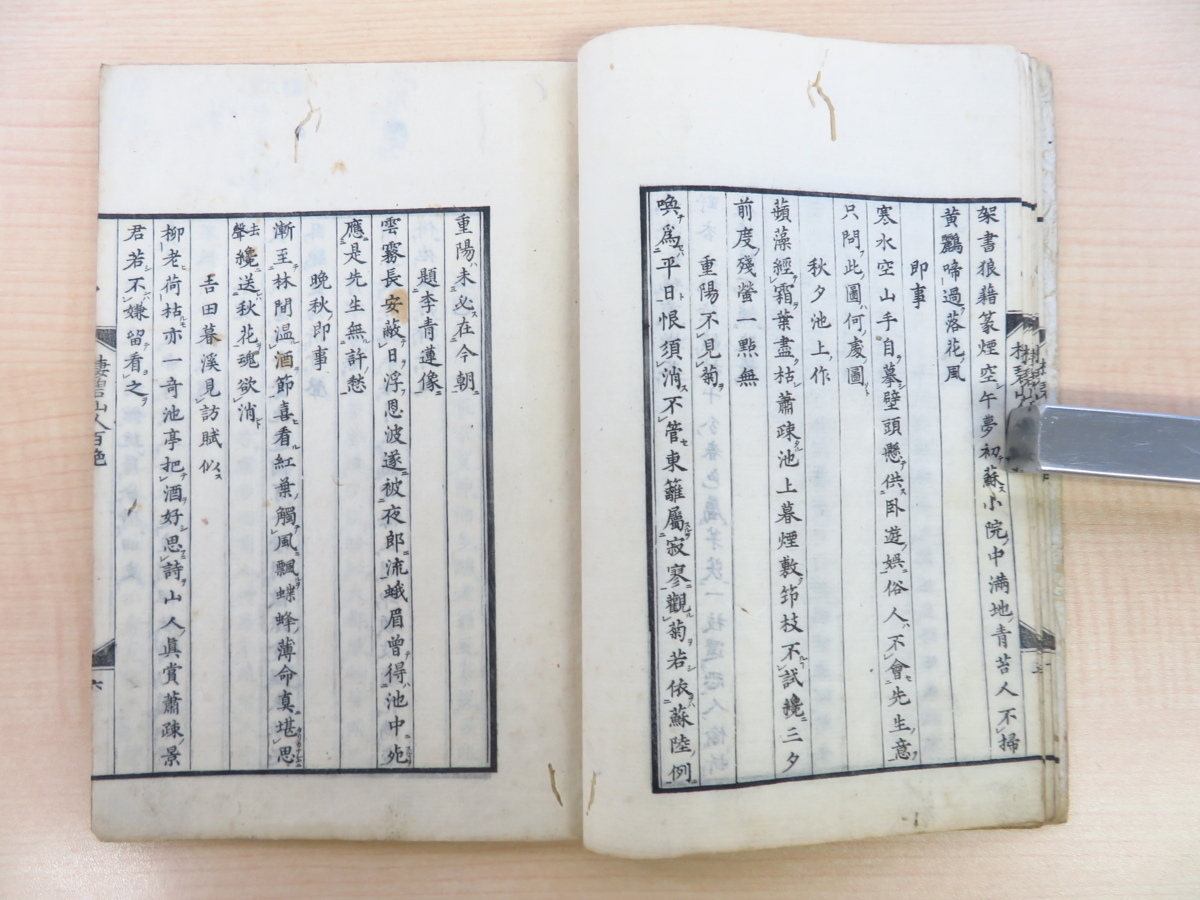 架書狼藉篆煙空午夢初蘇小院中滿地青苔人不掃
黄鸝啼過落花風
即事
寒水空山手自摹壁頭懸供卧遊娯俗人不會先生意
只問此圖何處圖
秋夕池上作
蘋藻經霜葉盡枯蕭疎池上暮煙敷笻枝不試纔三夕
前度殘螢一點無
重陽不見菊
喚爲平日恨須消不管東籬屬寂寥觀菊若依蘇陸例
重陽未必在今朝
題李青蓮像
雲霧長安蔽日浮恩波遂被夜郎流蛾眉曾得池中死
應是先生無許愁
晩秋即事
漸至林間温酒節喜看紅葉觸風飄蝶蜂薄命真堪思
去聲纔送秋花魂欲消
吉田暮溪見訪賦似
柳老荷枯亦一奇池亭把酒好思詩山人眞賞蕭疎景
君若不嫌留看之
棲碧山人百絶
六